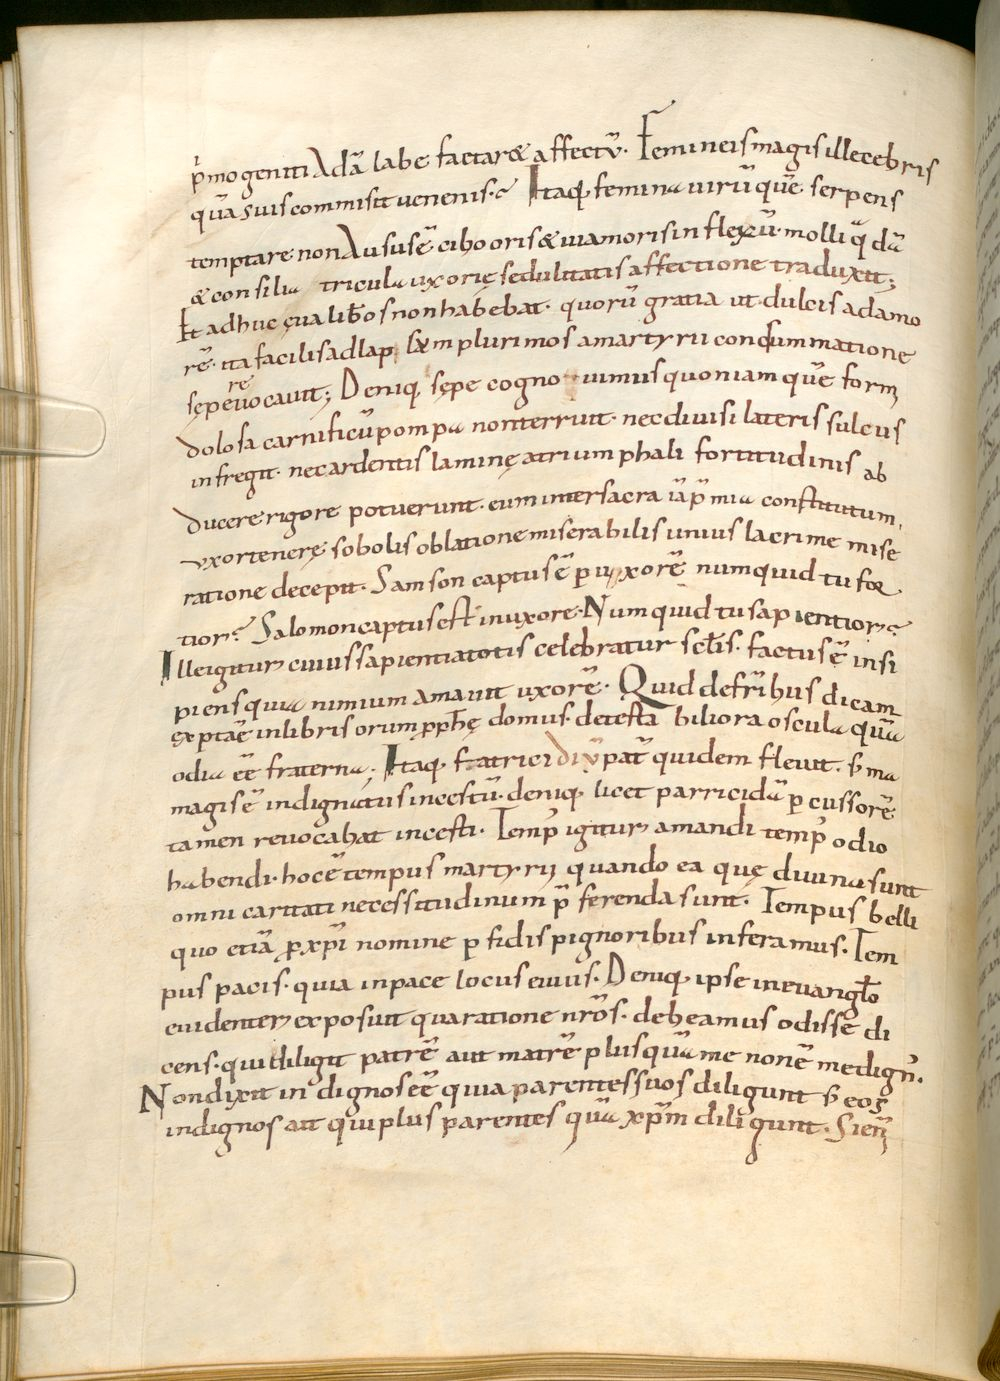 p̍mogeniti Adā labe factaret affectū. Femineis magis illecebris
quā suis commisit uenenis.? Itaq; feminā uirūque serpens
temptare non Aususē. cibo oris & uiamoris inflexū. molli q̄dā
& consilia tricula uxorię sedulitatis affectione traduxit;
Et adhuc ęua lib̄os non habebat. quorū gratia ut dulcis adamo
rē. ita facilis ad lap lxm plurimos a martyrii consummatione
sępe reuocauit; Deniq, sępe cognouimus quoniam quē form
dolosa carnificū pompa non terruit. nec diuisi lateris sulcus
infregit. nec ardentis laminę atrium phali fortitudinis ab
ducere rigore potuerunt. eum inter sacra iā p̄mia constitutum,
uxor tenerę sobolis oblatione miserabilis unius lacrime mise
ratione decepit. Samson captus ē p uxorē numquid tu for
tior? Salomon captus est in uxore. Numquid tu sapientior?
Ille igitur cuius sapientia totis celebratur sclīs. factus ē insi
piens quia nimium amauit uxorē. Quid de fr̄ibus dicam
exptāe in libris orum pp̄hę domus. detesta biliora oscula quā
odia ēē fraterna. Itaq, fratricidiū pat̄ quidem fleuit. s; ma
magis ē indignatus incestū. deniq, licet parricidā pcussorē
tamen reuocabat incesti. Temp̄ igitur amandi temp̄ odio
habendi. hoc ē tempus martyrij quando ea quę diuina sunt
omni caritati necessitudinum p̄ferenda sunt. Tempus belli
quo etiā p xp̄i nomine p fidis pignoribus inferamus. Tem
pus pacis. quia in pace locus eiuus. Deniq, ipse in euangl̄o
euidenter exposuit qua ratione nr̄os. debeamus odisse di
cens. qui diligit patrē aut matrē plus quā me non ē me dign̄.
Non dixit indignos eē quia parentes suos diligunt s; eos
indignos ait qui plus parentes quā xp̄m diligunt. Si en̄